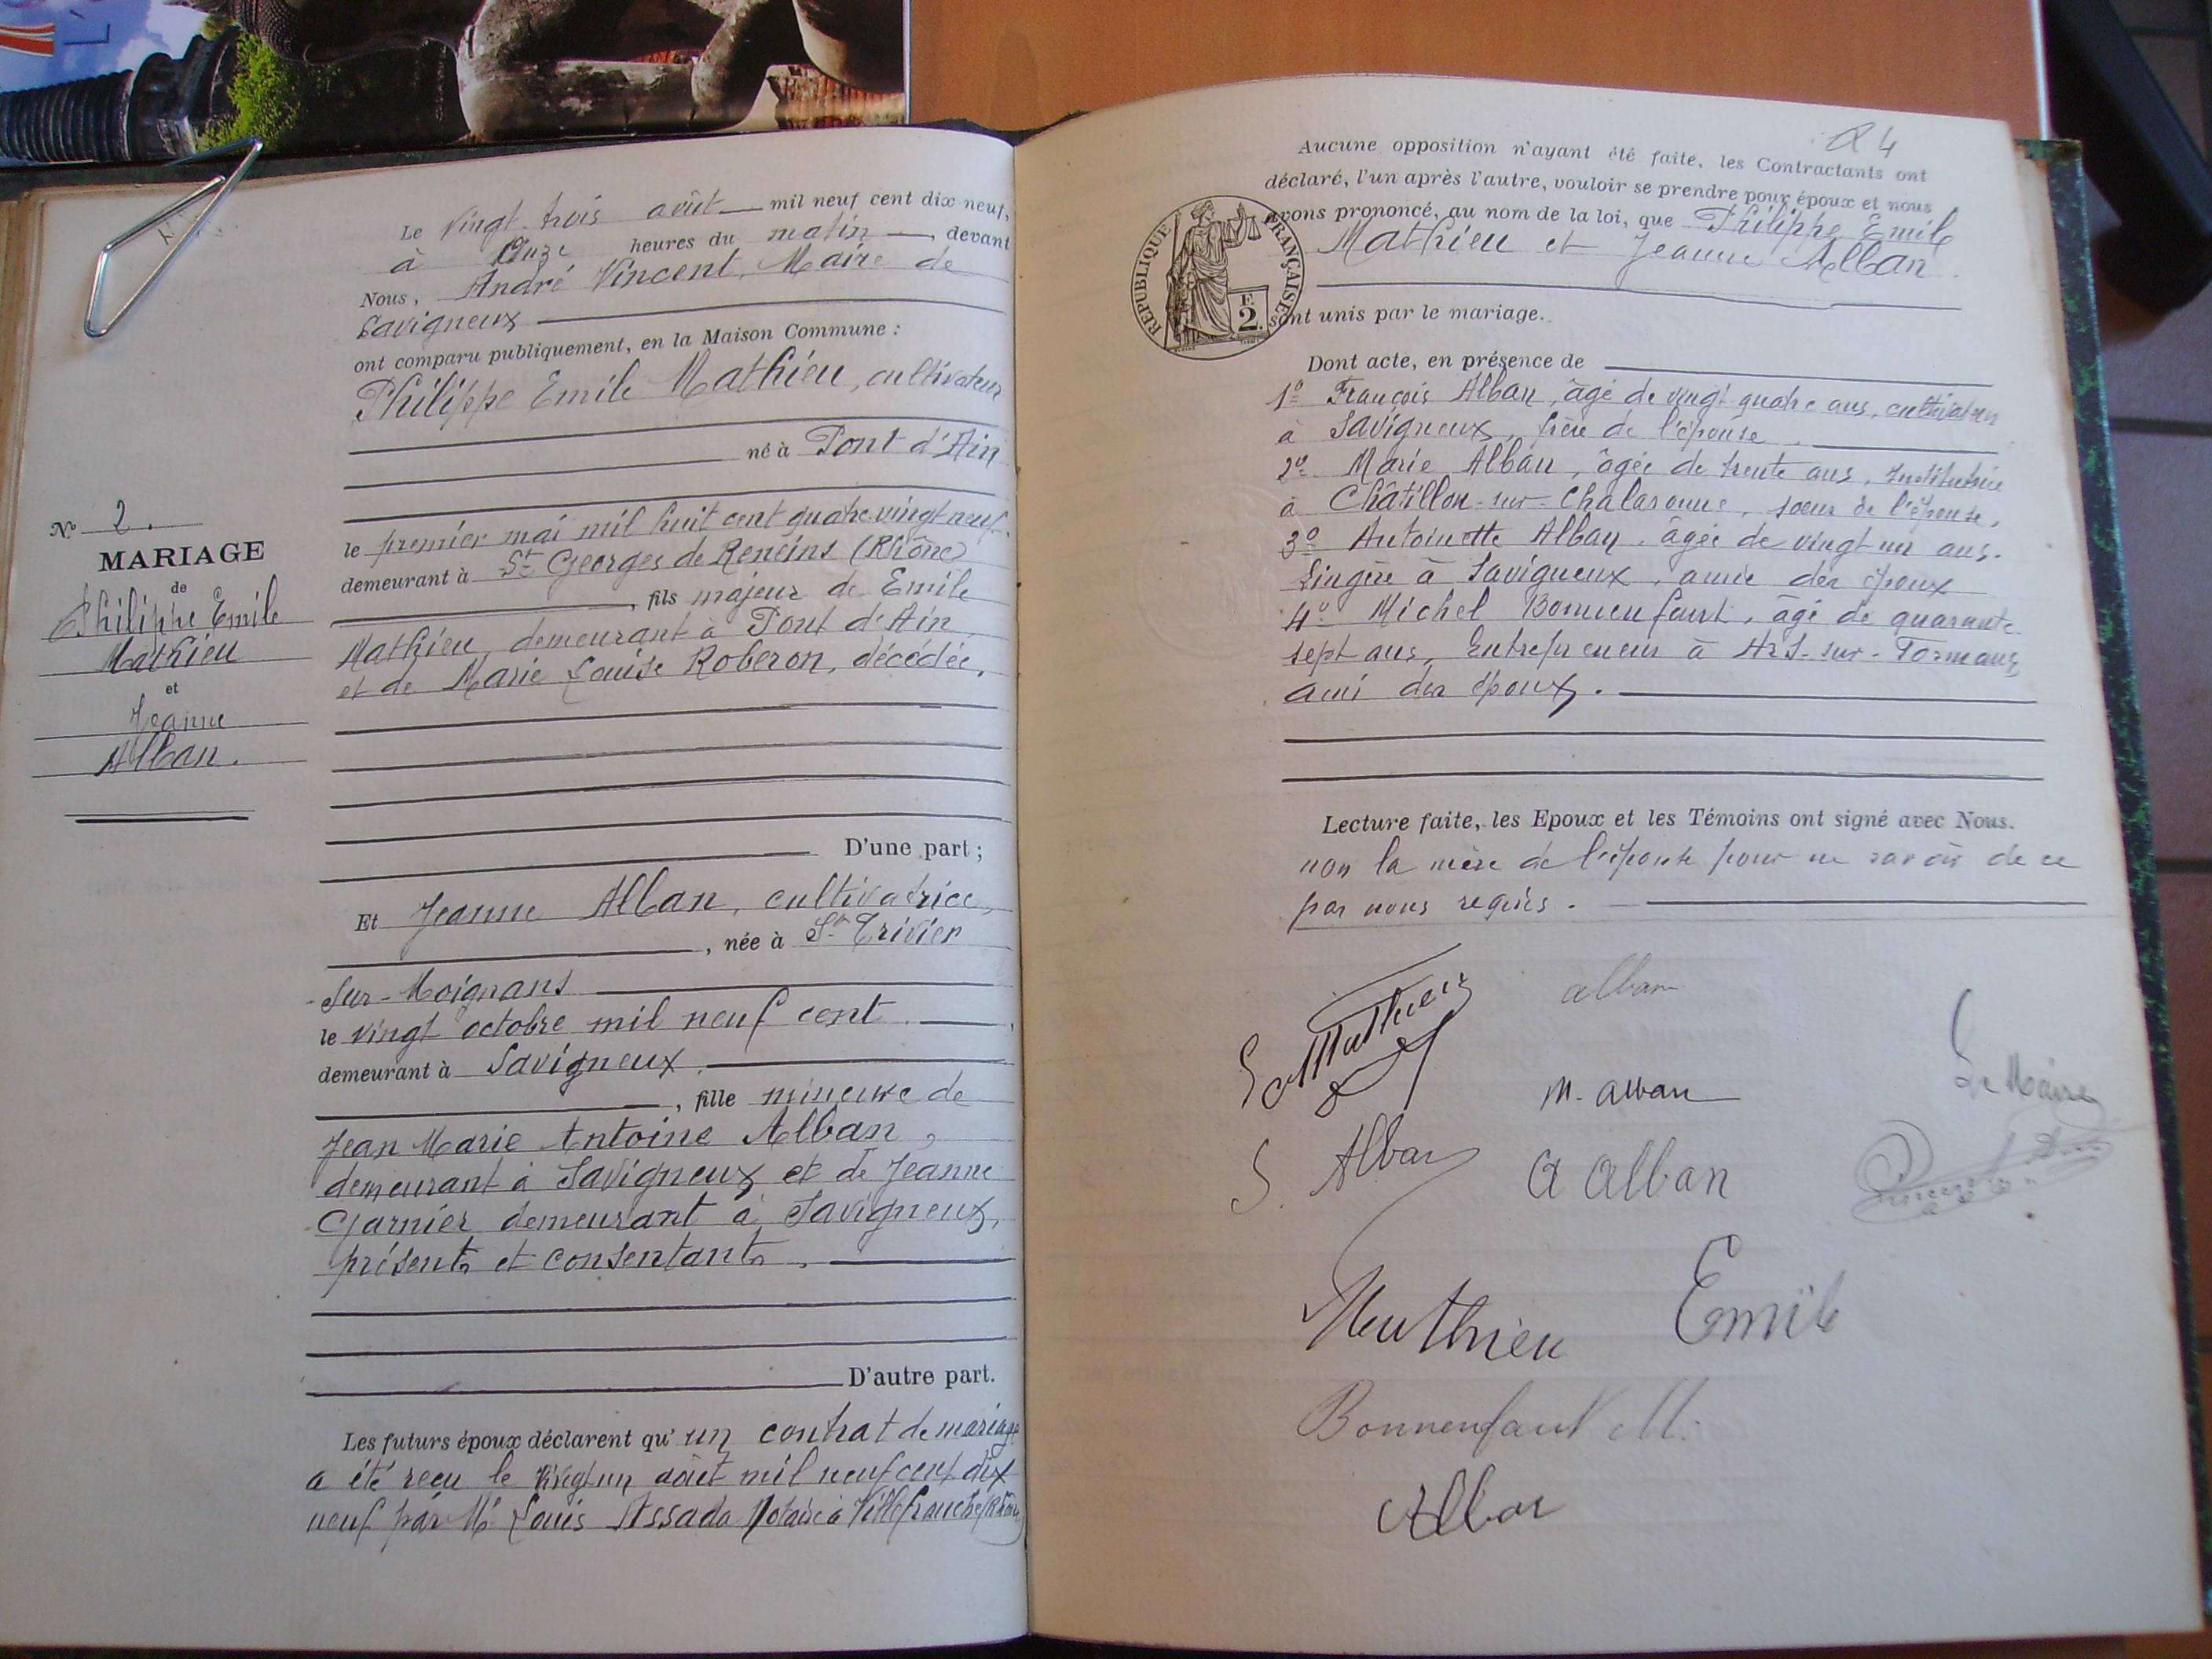 N° 2.
MARIAGE
de
Philippe Emile
Mathieu
et
Jeanne
Alban.
Le vingt trois août mil neuf cent dix neuf,
à Onze heures du matin, devant
Nous, André Vincent, Maire de
Savigneux
ont comparu publiquement, en la Maison Commune :
Philippe Emile Mathieu, cultivateur
né à Pont d'Ain
le premier mai mil huit cent quatre vingt neuf.
demeurant à St Georges de Reneins (Rhône)
, fils majeur de Emile
Mathieu, demeurant à Pont d'Ain,
et de Marie Louise Roberon, décédée,
D'une part ;
Et Jeanne Alban, cultivatrice,
, née à St Trivier
-sur-Moignans
le vingt octobre mil neuf cent
demeurant à Savigneux
, fille mineure de
Jean Marie Antoine Alban,
demeurant à Savigneux et de Jeanne
Garnier demeurant à Savigneux,
présents et consentants.
D'autre part.
Les futurs époux déclarent qu' un contrat de mariage
a été reçu le vingt un août mil neuf cent dix
neuf par Me Louis Assada Notaire à Villefranche (Rhône)
4
Aucune opposition n'ayant été faite, les Contractants ont
déclaré, l'un après l'autre, vouloir se prendre pour époux et nous
avons prononcé, au nom de la loi, que Philippe Emile
Mathieu et Jeanne Alban.
RÉPUBLIQUE FRANÇAISE
F.
2.
sont unis par le mariage.
Dont acte, en présence de
1° François Alban, âgé de vingt quatre ans, cultivateur
à Savigneux, frère de l'épouse.
2° Marie Alban, âgée de trente ans, Institutrice
à Châtillon-sur-Chalaronne, soeur de l'épouse,
3° Antoinette Alban, âgée de vingt un ans.
Lingère à Savigneux, amie des époux
4° Michel Bonnenfant, âgé de quarante
sept ans, Entrepreneur à Ars-sur-Formans,
ami des époux.
Lecture faite, les Epoux et les Témoins ont signé avec Nous.
non la mère de l'épouse pour ne savoir de ce
par nous requis.
Mathieu
alban
M. alban
Le Maire
J. Alban
A Alban
Vincent
Mathieu Emile
Bonnenfant M.
Alban